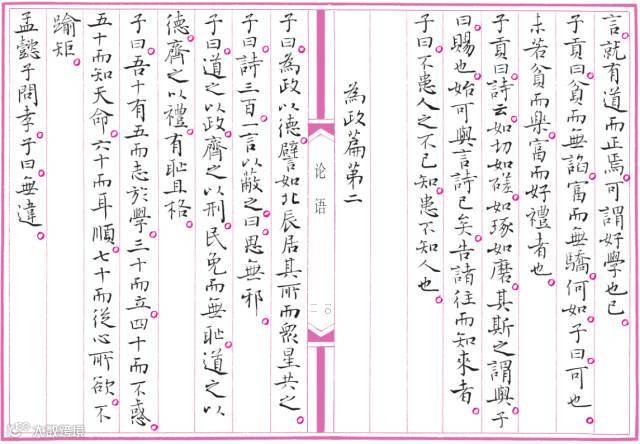 言就有道而正焉可謂好學也已
子貢曰貧而無諂富而無驕何如子曰可也
未若貧而樂富而好禮者也
子貢曰詩云如切如磋如琢如磨其斯之謂與子
曰賜也始可與言詩已矣告諸往而知來者
子曰不患人之不己知患不知人也
為政篇第二
论语
子曰為政以德譬如北辰居其所而眾星共之
子曰詩三百一言以蔽之曰思無邪
子曰道之以政齊之以刑民免而無恥道之以
德齊之以禮有恥且格
子曰吾十有五而志於學三十而立四十而不惑
五十而知天命六十而耳順七十而從心所欲不
踰矩
孟懿子問孝子曰無違
大数跨境